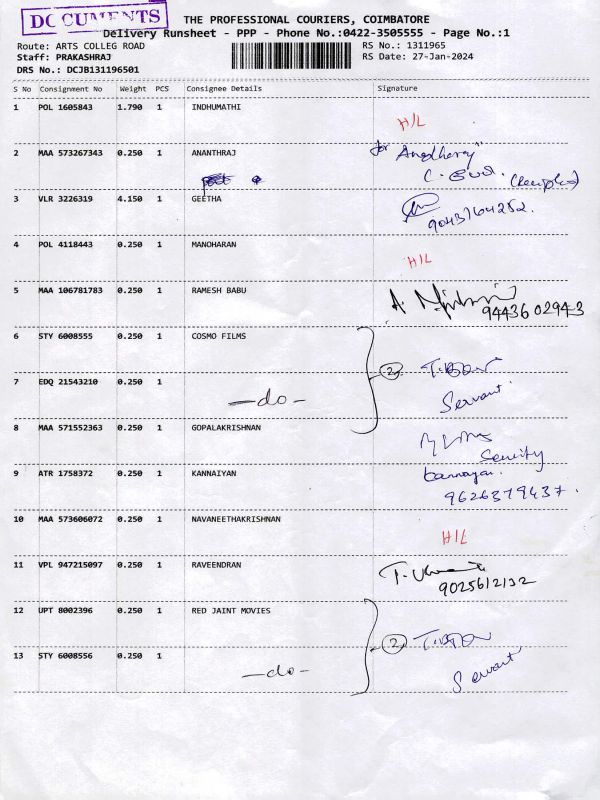 DOCUMENTS
THE PROFESSIONAL COURIERS, COIMBATORE
Delivery Runsheet - PPP - Phone No.:0422-3505555 - Page No.:1
Route: ARTS COLLEG ROAD
Staff: PRAKASHRAJ
DRS No.: DCJB131196501
RS No.: 1311965
RS Date: 27-Jan-2024
S No Consignment No Weight PCS Consignee Details Signature
1 POL 1605843 1.790 1 INDHUMATHI
H/L
2 MAA 573267343 0.250 1 ANANTHRAJ
for
3 VLR 3226319 4.150 1 GEETHA
9043764252.
4 POL 4118443 0.250 1 MANOHARAN
H/L
5 MAA 106781783 0.250 1 RAMESH BABU
94436 02943
6 STY 6008555 0.250 1 COSMO FILMS
2
7 EDQ 21543210 0.250 1
-do-
Servant.
8 MAA 571552363 0.250 1 GOPALAKRISHNAN
Security
9 ATR 1758372 0.250 1 KANNAIYAN
9626379437.
10 MAA 573606072 0.250 1 NAVANEETHAKRISHNAN
H/L
11 VPL 947215097 0.250 1 RAVEENDRAN
9025612132
12 UPT 8002396 0.250 1 RED JAINT MOVIES
2
13 STY 6008556 0.250 1
-do-
Servant